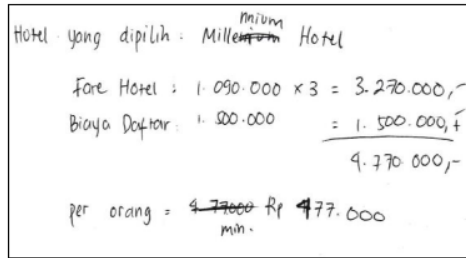 Hotel yang dipilih : Millennium Hotel
Fare Hotel : 1.090.000 × 3 = 3.270.000,-
Biaya Daftar : 1.500.000 = 1.500.000,+
4.770.000,-
per orang = Rp 477.000
min.